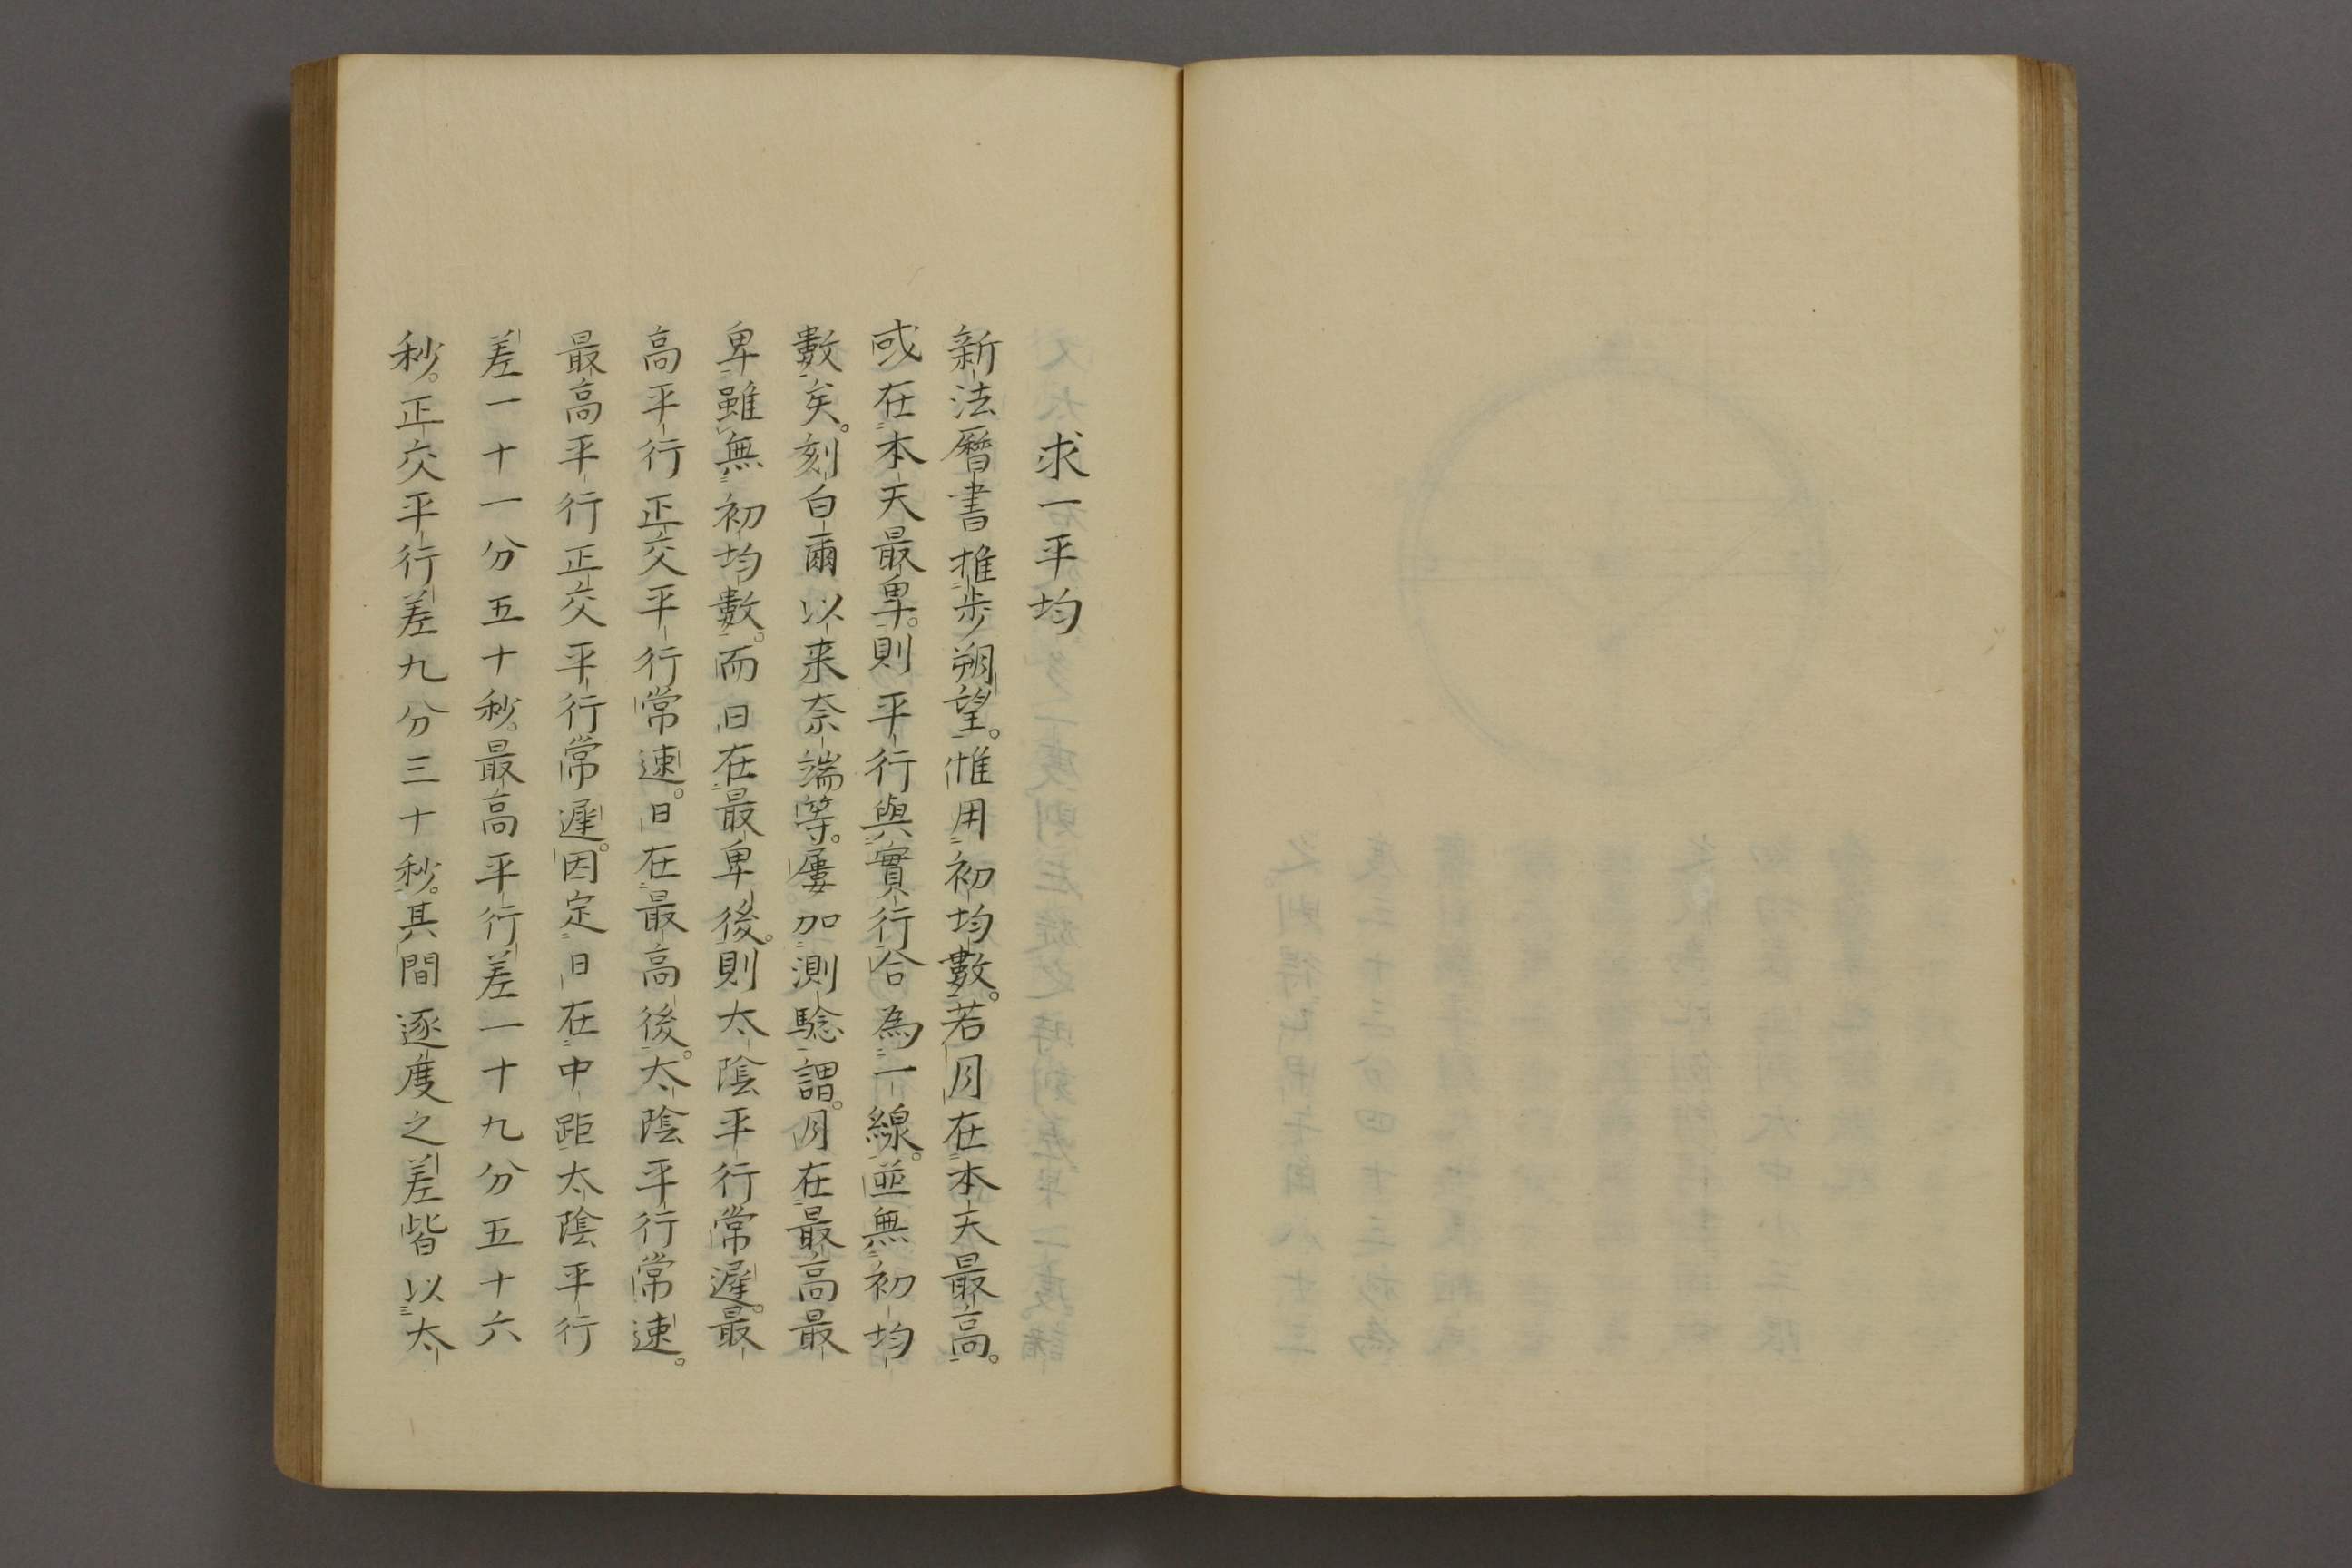 求一平均
新法曆書推步朔望。惟用初均數。若月在本天最高。
或在本天最卑。則平行與實行合為一線。並無初均
數矣。刻白爾以来奈端等。屢加測驗謂。月在最高最
卑雖無初均數。而日在最卑後。則太陰平行常遲。最
高平行正交平行常速。日在最高後。太陰平行常速。
最高平行正交平行常遲。因定日在中距太陰平行
差一十一分五十秒。最高平行差一十九分五十六
秒。正交平行差九分三十秒。其間逐度之差皆以太